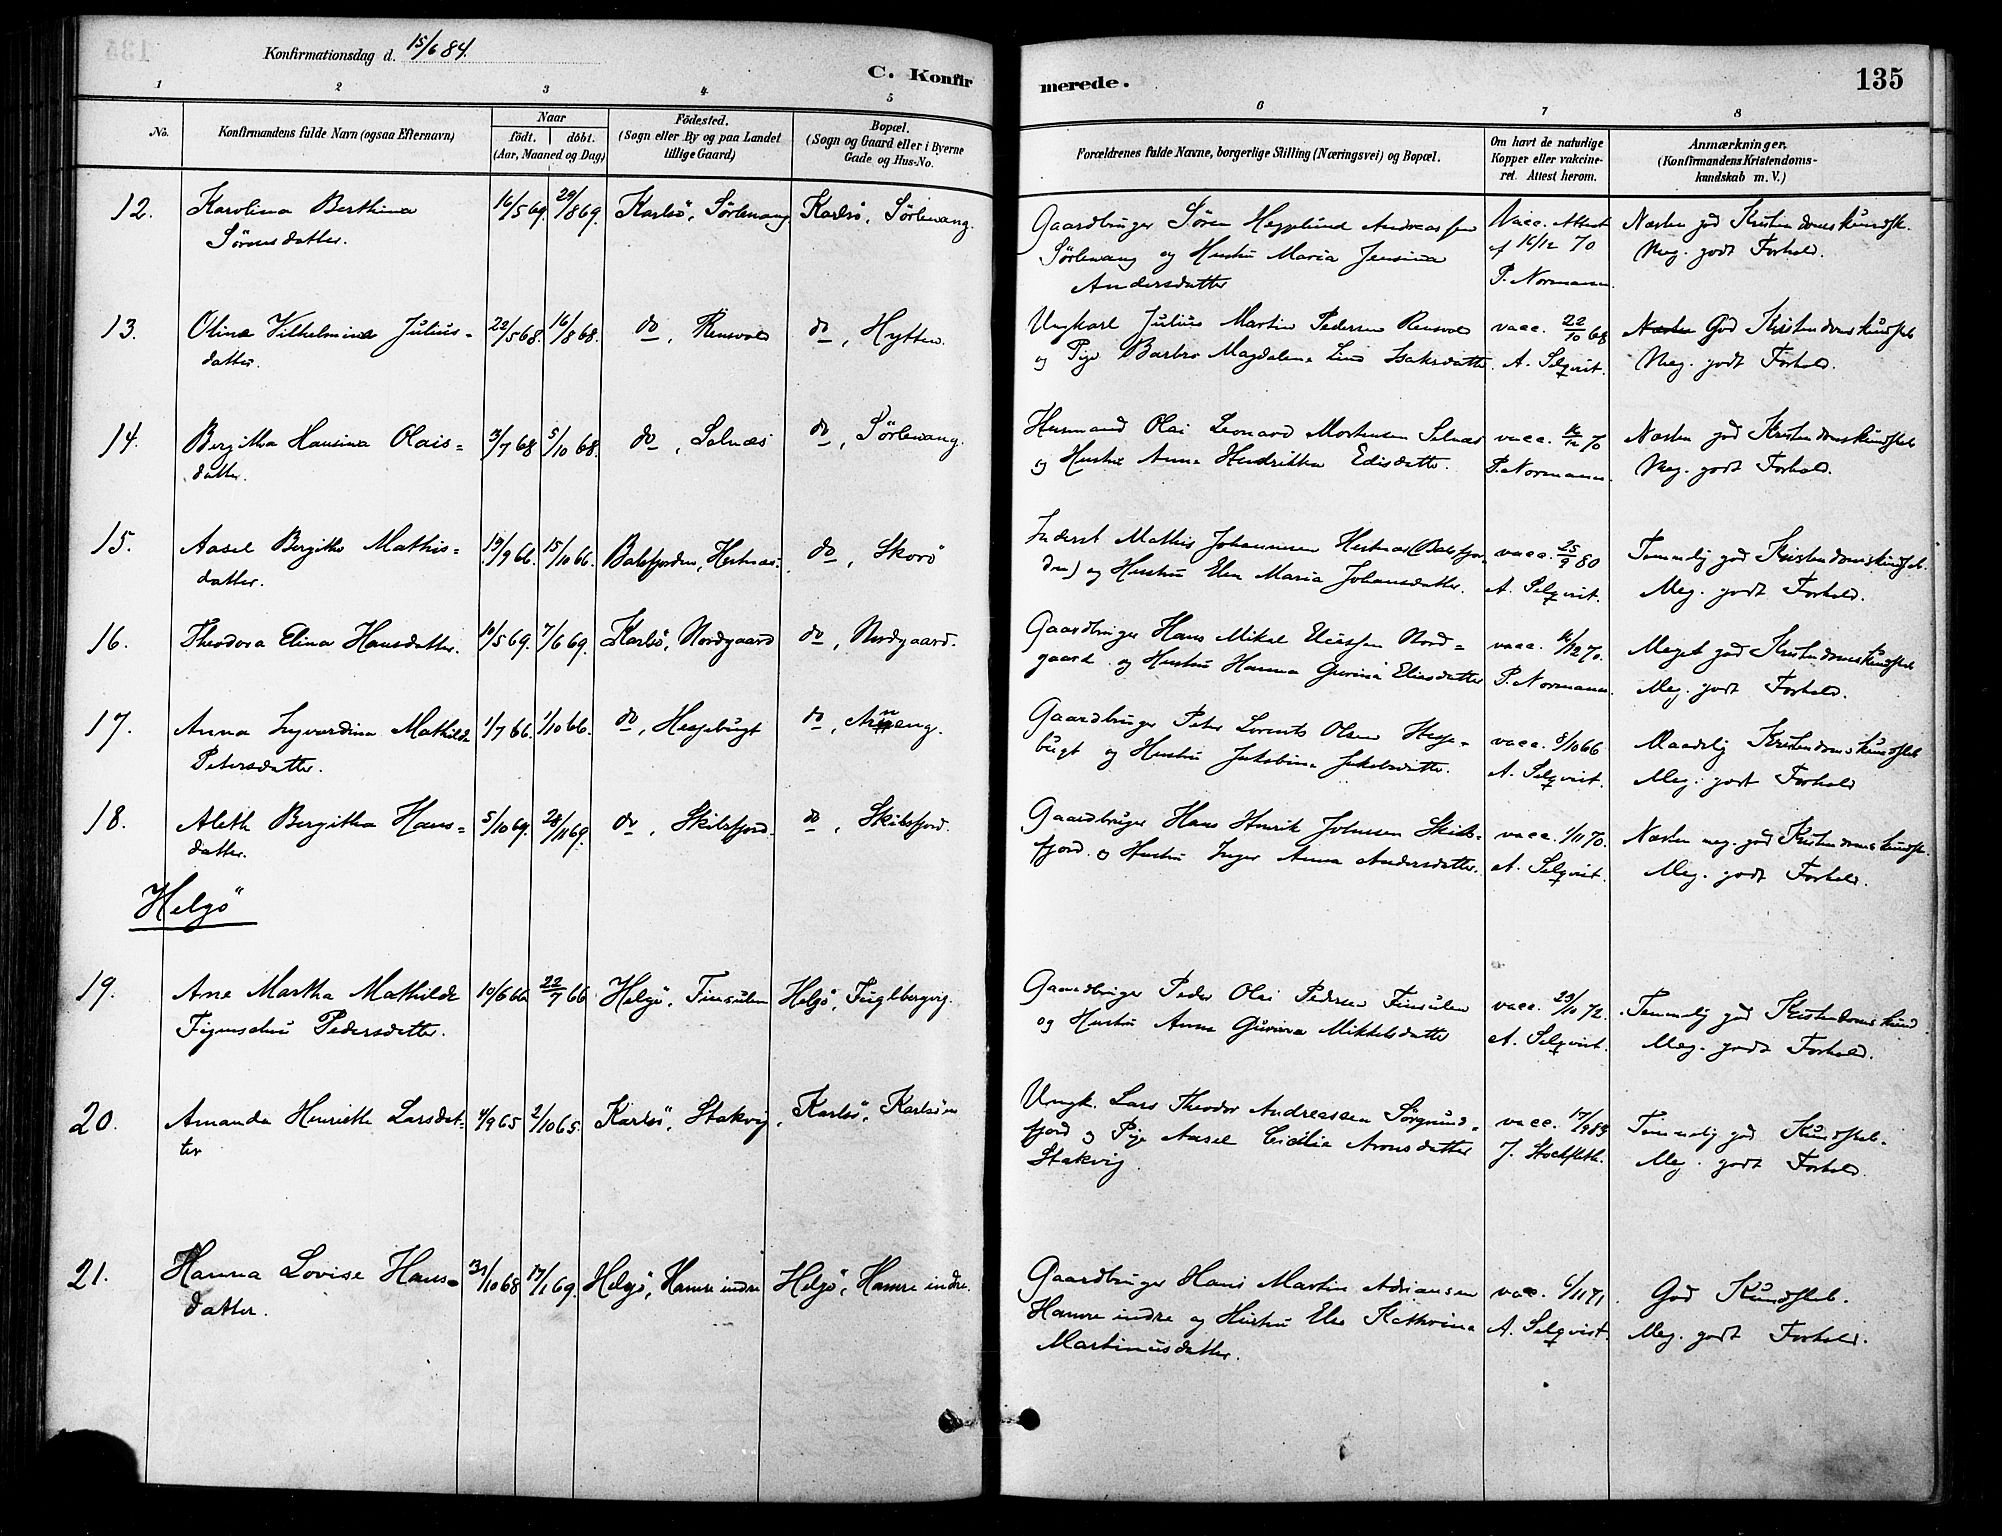 Konfirmationsdag d. 15/6 84.
C. Konfirmerede.
135
1 2 3 4 5 6 7 8
No.
Konfirmandens fulde Navn (ogsaa Efternavn)
Naar
födt. döbt.
(Aar, Maaned og Dag)
Födested.
(Sogn eller By og paa Landet
tillige Gaard)
Bopæl.
(Sogn og Gaard eller i Byerne
Gade og Hus-No.
Forældrenes fulde Navne, borgerlige Stilling (Næringsvei) og Bopæl.
Om havt de naturlige
Kopper eller vakcine-
ret. Attest herom.
Anmærkninger.
(Konfirmandens Kristendoms-
kundskab m. V.)
12. Karolina Berthina 16/5 69. 29/8 69. Karlsö, Sörlenang. Karlsö, Sörlenang. Gaardbruger Sören Andreassen Vacc. Attest Næsten god Kristendomskundsk.
Sörensdatter. Sörlenang og Hustru Maria Jensina af 16/12 70 Meg. godt Forhold.
Andersdatter P. Normann
13. Olina Vilhelmina Julius- 22/5 68. 16/8 68. do, do, Hytten. Ungkarl Julius Martin Pedersen vacc. 22/10 68 God Kristendomskundskab
datter. og Pige Barbro Magdalena Lind Isaksdatter. A. Selqvist. Meg. godt Forhold.
14. Bergitha Hansina Olais- 3/7 68 5/10 68. do, Solnæs do, Sörlenang. Husmand Olai Leonard Mortensen vacc. 16/12 70 Næsten god Kristendomskundskab
datter. og Hustru Anna Hendrikka Edisdatter. P. Normann. Meg. godt Forhold.
15. Aasel Bergithe Mathis- 19/9 66. 15/10 66. Balsfjorden, Hestnæs. do, Skorö Inderst Mathis Johannesen Hestnæs (Balsfjor- vacc. 25/9 80 Temmelig god Kristendomskundskab.
datter. den) og Hustru Elen Maria Johansdatter. A. Selqvist. Meg. godt Forhold.
16. Theodora Elina Hansdatter. 10/5 69. 7/6 69. Karlsö, Nordgaard do, Nordgaard. Gaardbruger Hans Mikal Nord- vacc. 16/12 70. Meget god Kristendomskundskab
gaard. og Hustru Hanna Gurina Eliasdatter P. Normann. Meg. godt Forhold.
17. Anna Ingvardina Mathilde 1/7 66. 1/10 66. do, Hessebugt do, Gaardbruger Peter Lorents Olsen Hesse- vacc. 8/10 66 Maadelig Kristendomskundskab
Petersdatter. bugt og Hustru Jakobina Jakobsdatter. A. Selqvist. Meg. godt Forhold
18. Aleth Bergitha Hans- 5/10 69. 28/11 69. do, Skibsfjord. do, Skibsfjord. Gaardbruger Hans Henrik Johnsen Skibs- vacc. 1/11 70. Næsten meg. god Kristendomskundsk.
datter. fjord. og Hustru Inger Anna Andersdatter. A. Selqvist. Meg. godt Forhold.
Helgö
19. Ane Martha Mathilde 10/6 66 22/7 66. Helgö, Finsulen Helgö, Fuglbergvig. Gaardbruger Peder Olai Pedersen Finsulen vacc. 29/10 72. Temmelig god Kristendomskund
Figenschu Pedersdatter. og Hustru Anna Gurina Mikkelsdatter A. Selqvist. Meg. godt Forhold.
20. Amanda Henriette Larsdat- 4/9 65 2/10 65. Karlsö, Stakvig. Karlsö, Karlsöen Ungk. Lars Theodor Andreassen Sörgrund- vacc. 17/9 83 Temmelig god Kundskab.
ter fjord og Pige Aasel Cicilia Aronsdatter J. Stockfleth. Meg. godt Forhold.
Stakvig.
21. Hanna Lovise Hans- 31/10 68 17/1 69. Helgö, Hamre indre Helgö, Hamre indre. Gaardbruger Hans Martin Adriansen vac. 6/11 71 God Kundskab.
datter. Hamre indre og Hustru Else Kathrina A. Selqvist. Meg. godt Forhold.
Martinusdatter.